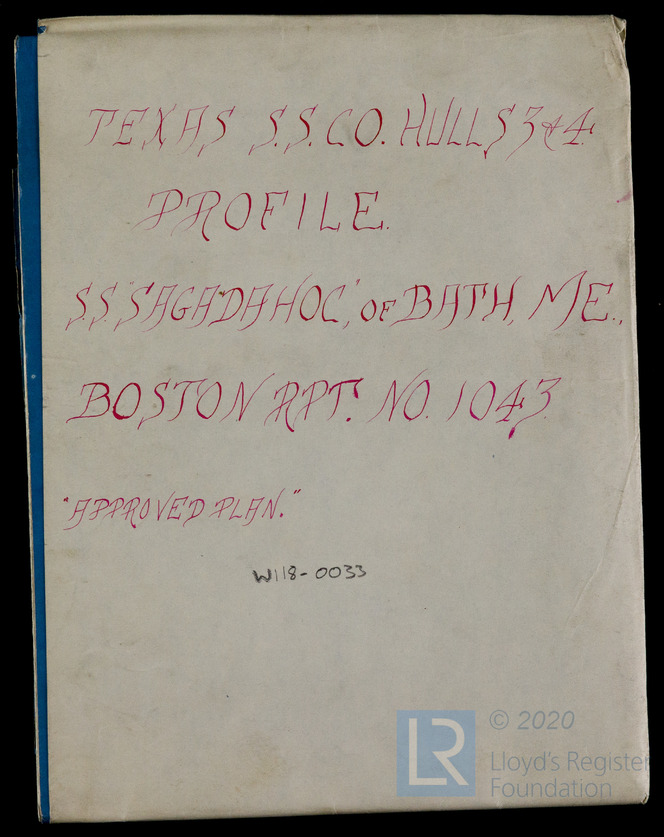 TEXAS S.S. CO. HULLS 3 & 4.
PROFILE.
S.S. "SAGADAHOC", OF BATH, ME.,
BOSTON RPT. NO. 1043
"APPROVED PLAN."
W118-0033
LR
© 2020
Lloyd's Register
Foundation